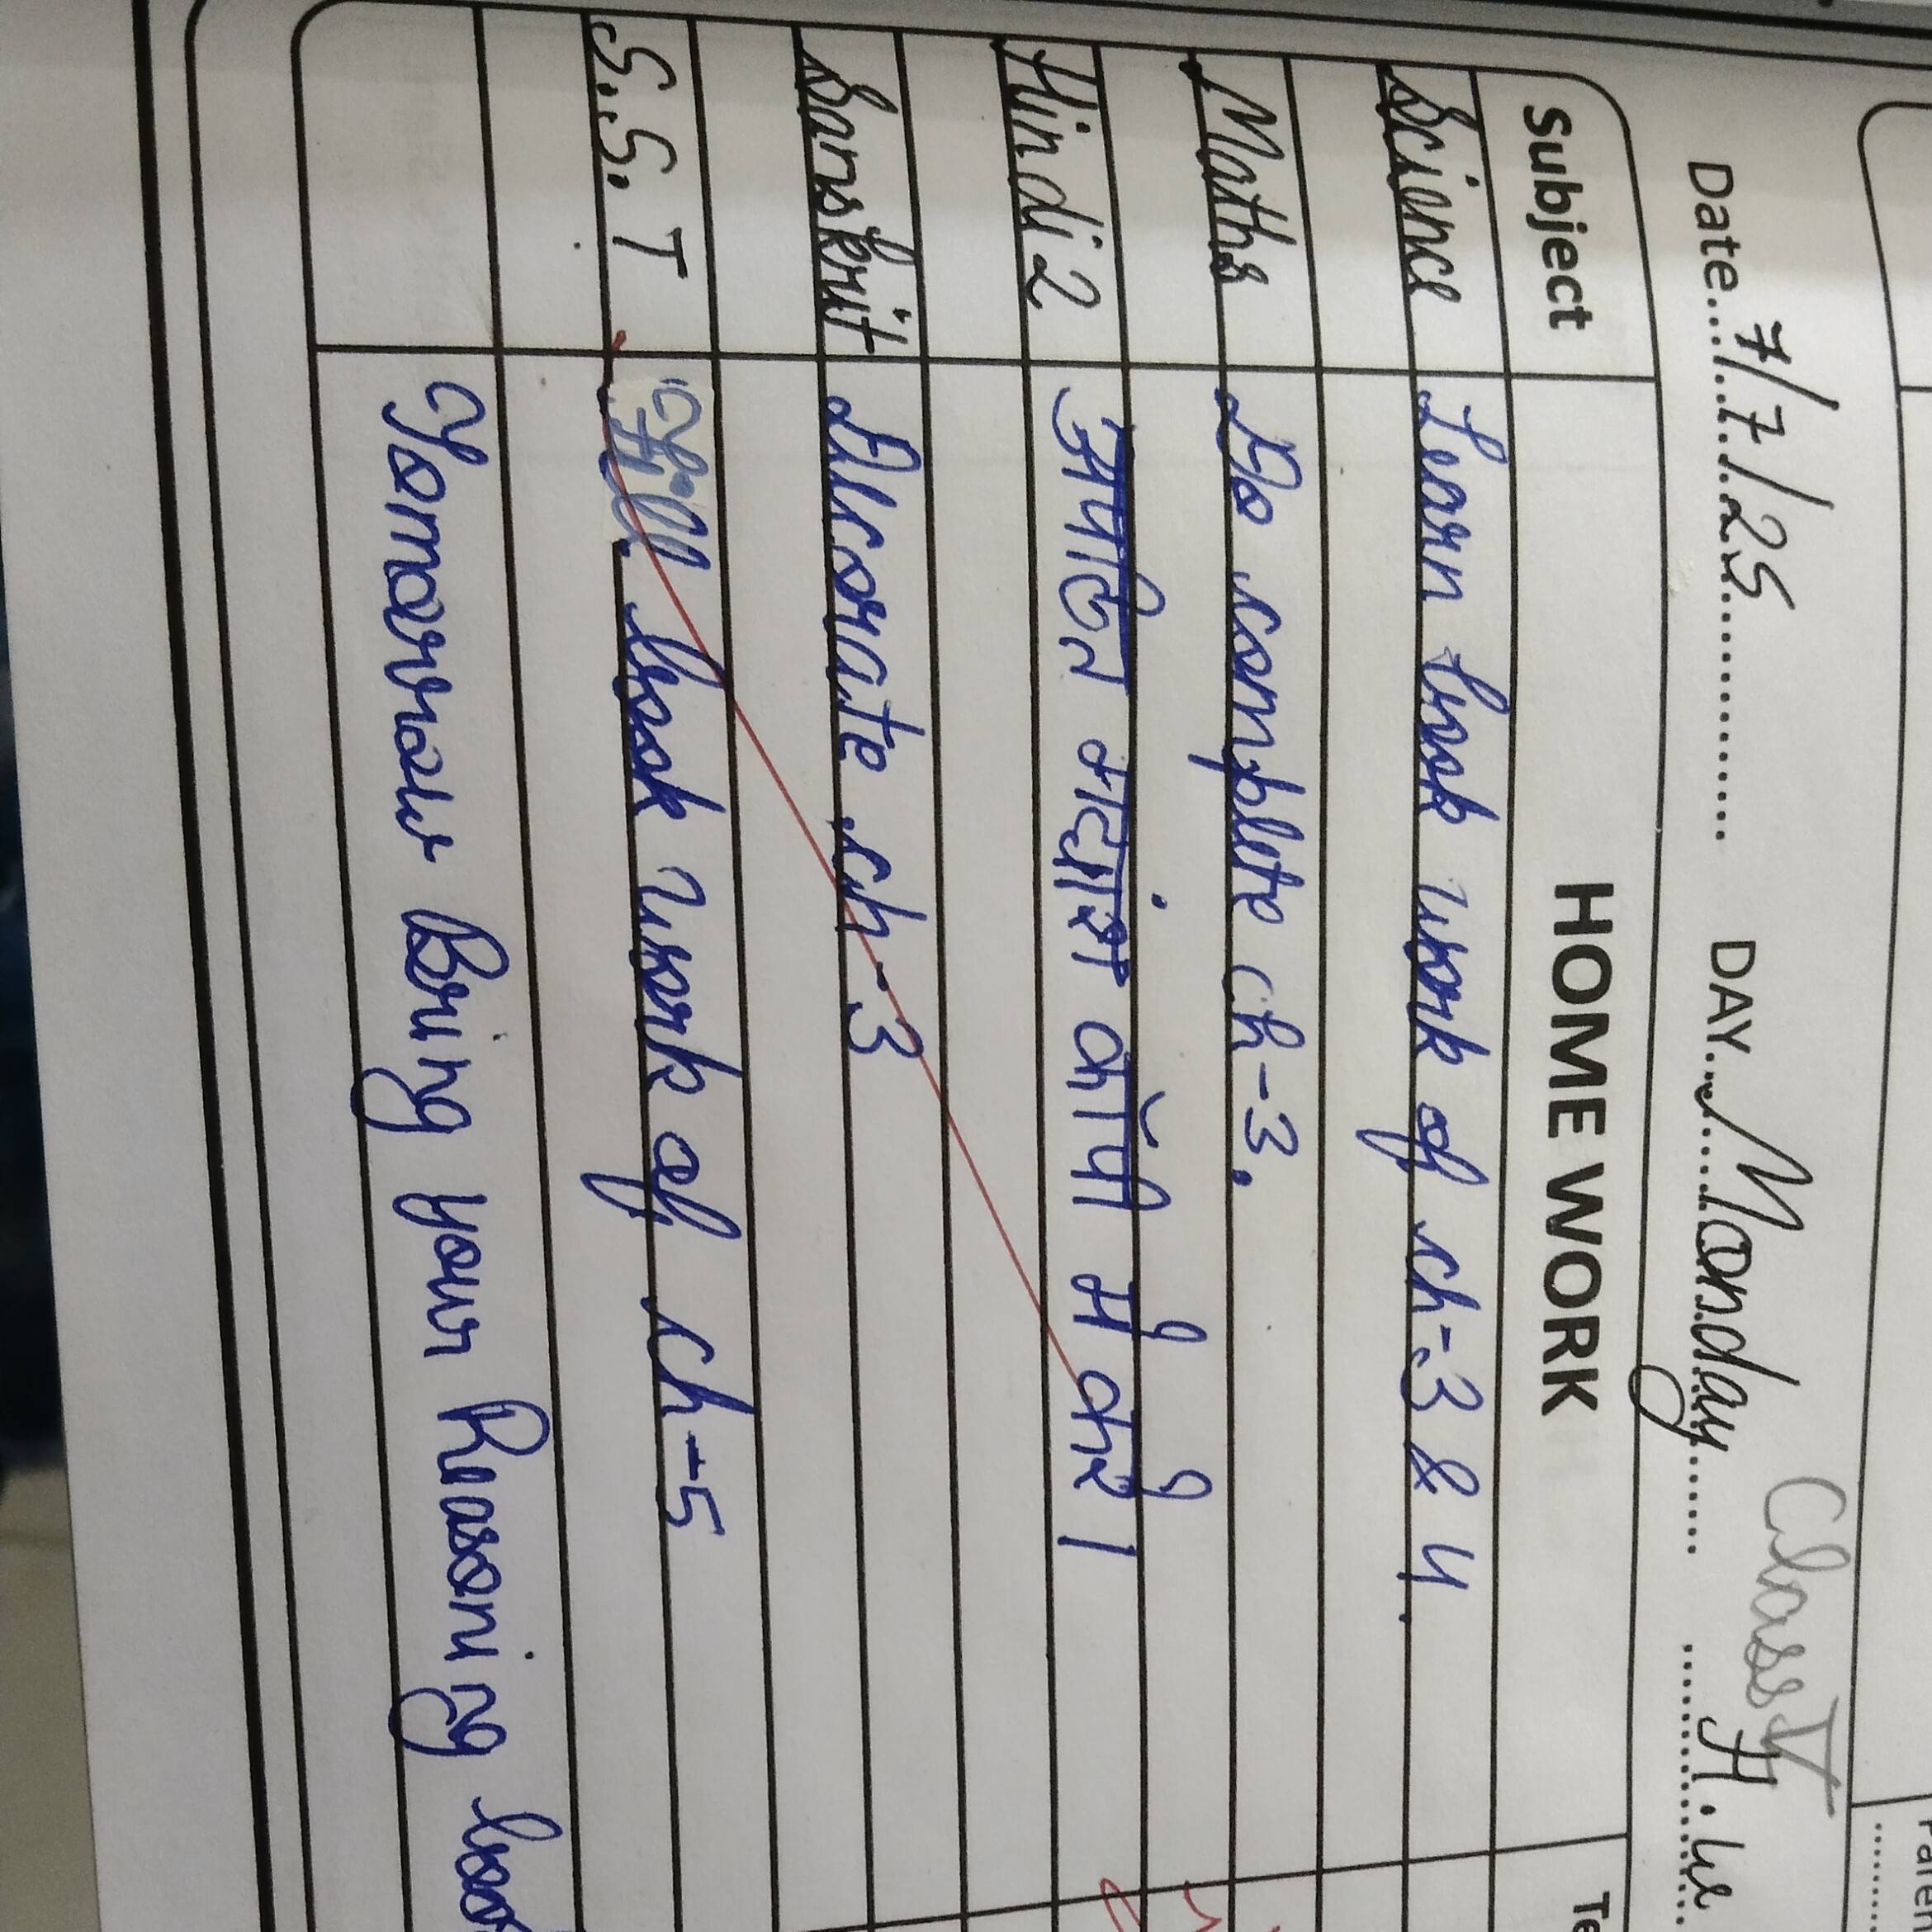 Class V
Date...7/7/25........... DAY...Monday........ H.w
Subject HOME WORK
Science Learn book work of ch-3 & 4.
Maths Do complete ch-3.
Hindi 2 अपठित गद्यांश कॉपी में करें।
Sanskrit Decorate ch-3
S.S.T Fill book work of ch-5
Tomorrow Bring your Reasoning